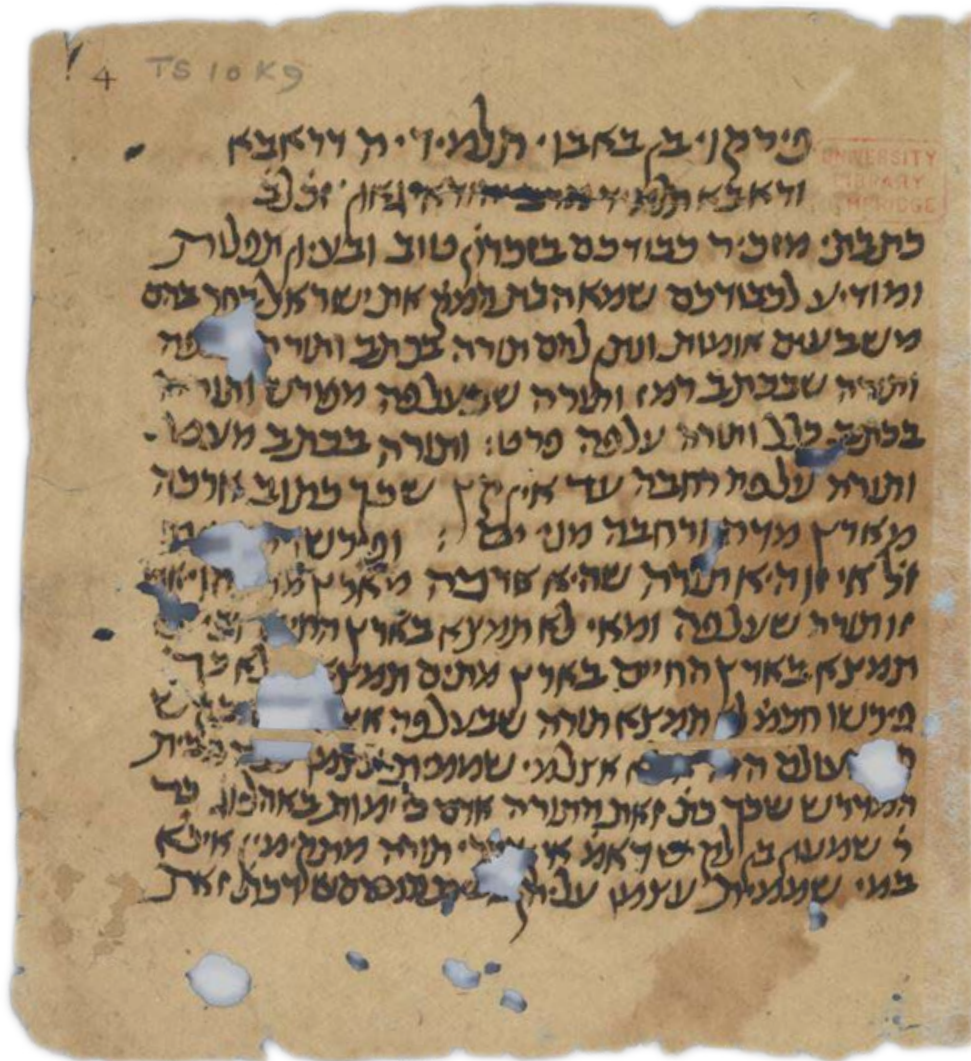 4 TS 10 K 9
UNIVERSITY LIBRARY CAMBRIDGE
פירקוי בן באבוי תלמידיה דראבא
וראבא תלמיד יהודאי גאון זכ'לב'
כתבתי מזכיר כבודכם בזכרון טוב ובעינן תפלות
ומודיע לכבודכם שמאהבת המק' את ישראל בחר בהם
משבעים אומות ונתן להם תורה בכתב ותורה פה
ותורה שבכתב רמז ותורה שבעלפה מפורש ותורה
בכתב כלל ותורה עלפה פרט: ותורה בכתב מעט
ותורה עלפה רחבה עד אין קץ שכך כתוב ארכה
מארץ מדה ורחבה מני ים : ופירשו
זל אי זו היא תורה שהיא ארכה מארץ מדה הוי או
זו תורה שעלפה ומאי לא תמצא בארץ החיים
תמצא בארץ החיים בארץ מתים תמצא אלא כך
פירשו חכמ' לא תמצא תורה שבעלפה
העולם אצל מי שממית עצמו בבית
המדרש שכך כת' זאת התורה אדם כי ימות באהל
ר' שמעון בן לקיש דאמ' אין דברי תורה מתקימין אילא
במי שממית עצמו עליהן זאת